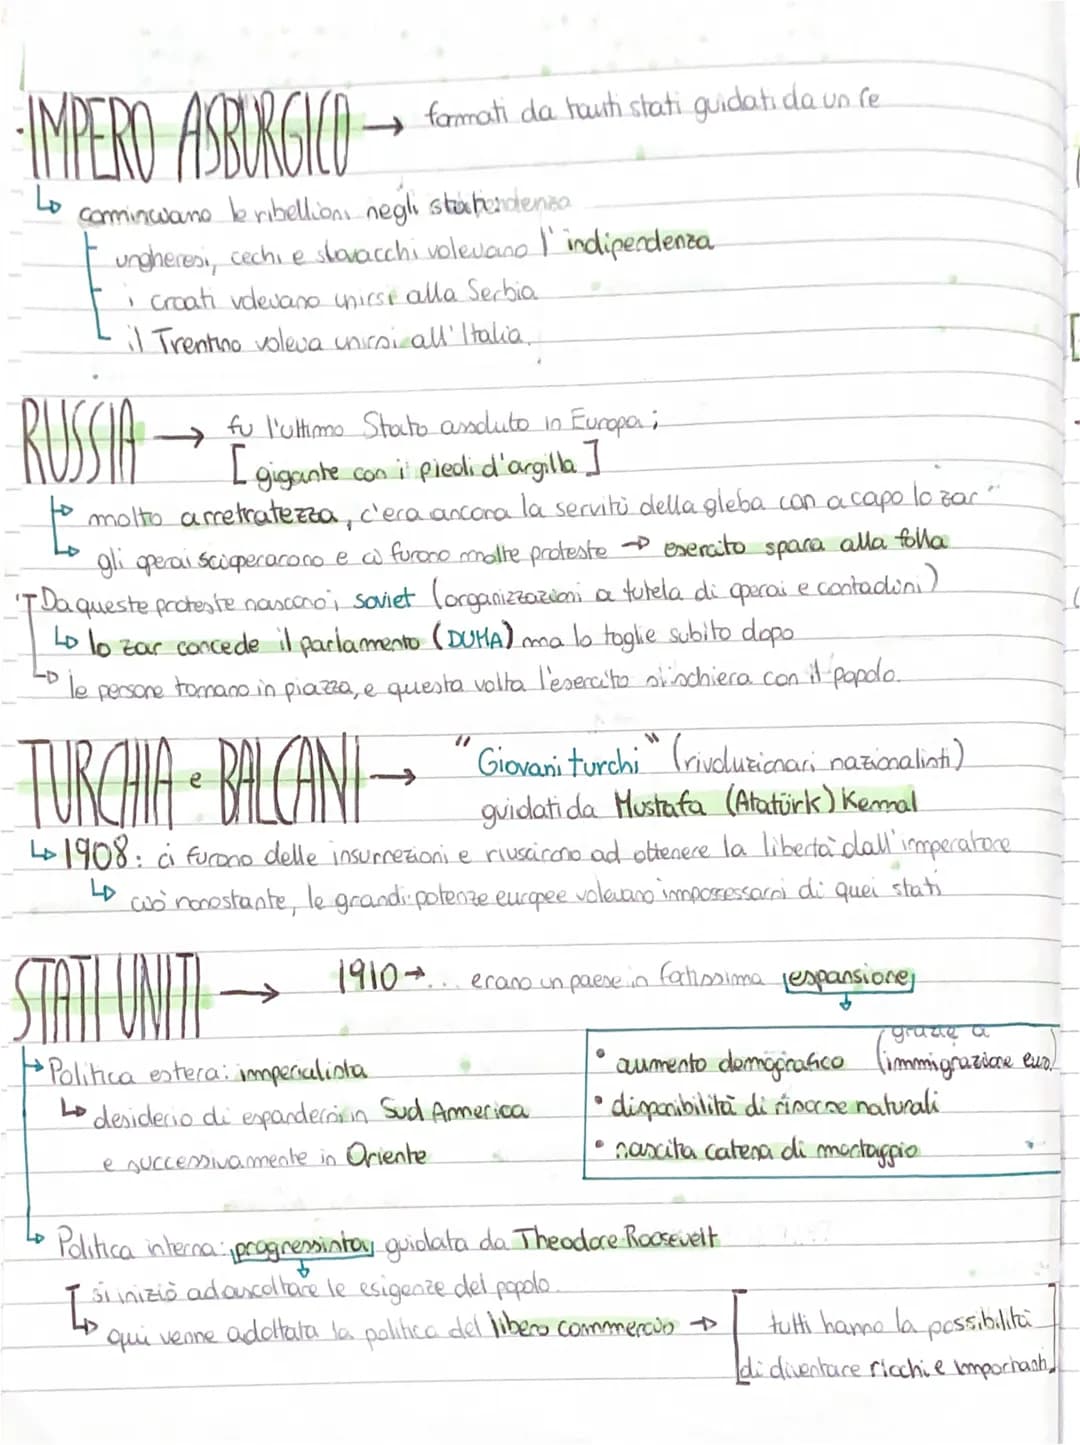 ·IMPERO ASBURGICO → formati da tanti stati guidati da un re
↳ cominciano le ribellioni negli stati
ungheresi, cechi e slovacchi volevano l'indipendenza
i croati volevano unirsi alla Serbia
il Trentino voleva unirsi all'Italia.
RUSSIA → fu l'ultimo Stato assoluto in Europa;
[gigante con i piedi d'argilla]
↳ molto arretratezza, c'era ancora la servitù della gleba con a capo lo zar"
↳ gli operai scioperarono e ci furono molte proteste → esercito spara alla folla
Da queste proteste nascono i soviet (organizzazioni a tutela di operai e contadini)
↳ lo zar concede il parlamento (DUMA) ma lo toglie subito dopo
↳ le persone tornano in piazza, e questa volta l'esercito si schiera con il popolo.
TURCHIA e BALCANI → "Giovani turchi" (rivoluzionari nazionalisti)
guidati da Mustafa (Atatürk) Kemal
↳ 1908: ci furono delle insurrezioni e riuscirono ad ottenere la libertà dall'imperatore
↳ ciò nonostante, le grandi potenze europee volevano impossessarsi di quei stati
STATI UNITI → 1910 →... erano un paese in fortissima espansione
• aumento demografico (grazie a immigrazione euro.)
• disponibilità di risorse naturali
• nascita catena di montaggio
→ Politica estera: imperialista
↳ desiderio di espandersi in Sud America
e successivamente in Oriente
↳ Politica interna: progressista, guidata da Theodore Roosevelt
si iniziò ad ascoltare le esigenze del popolo.
↳ qui venne adottata la politica del libero commercio → [tutti hanno la possibilità
di diventare ricchi e importanti]